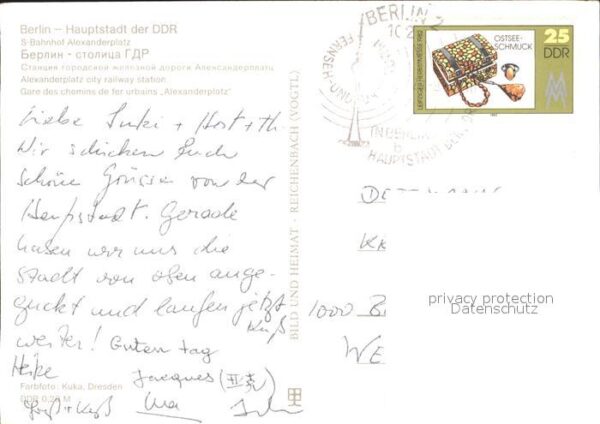 Berlin – Hauptstadt der DDR
S-Bahnhof Alexanderplatz
Берлин - столица ГДР
Станция городской железной дороги Александерплатц
Alexanderplatz city railway station
Gare des chemins de fer urbains „Alexanderplatz"
Liebe
Wir schicken Euch
schöne Grüsse von der
Hauptstadt. Gerade
haben wir uns die
Stadt von oben ange-
guckt und laufen jetzt
weiter! Guten Tag
Kuß
Heike
Jacques (亚克)
Farbfoto: Kuka, Dresden
DDR 0,20 M
Gruß + Kuß
BILD UND HEIMAT · REICHENBACH (VOGTL)
BERLIN
FERNSEH- UND
HAUPTSTADT
OSTSEE-
SCHMUCK
25
DDR
1000 B
WE
privacy protection
Datenschutz